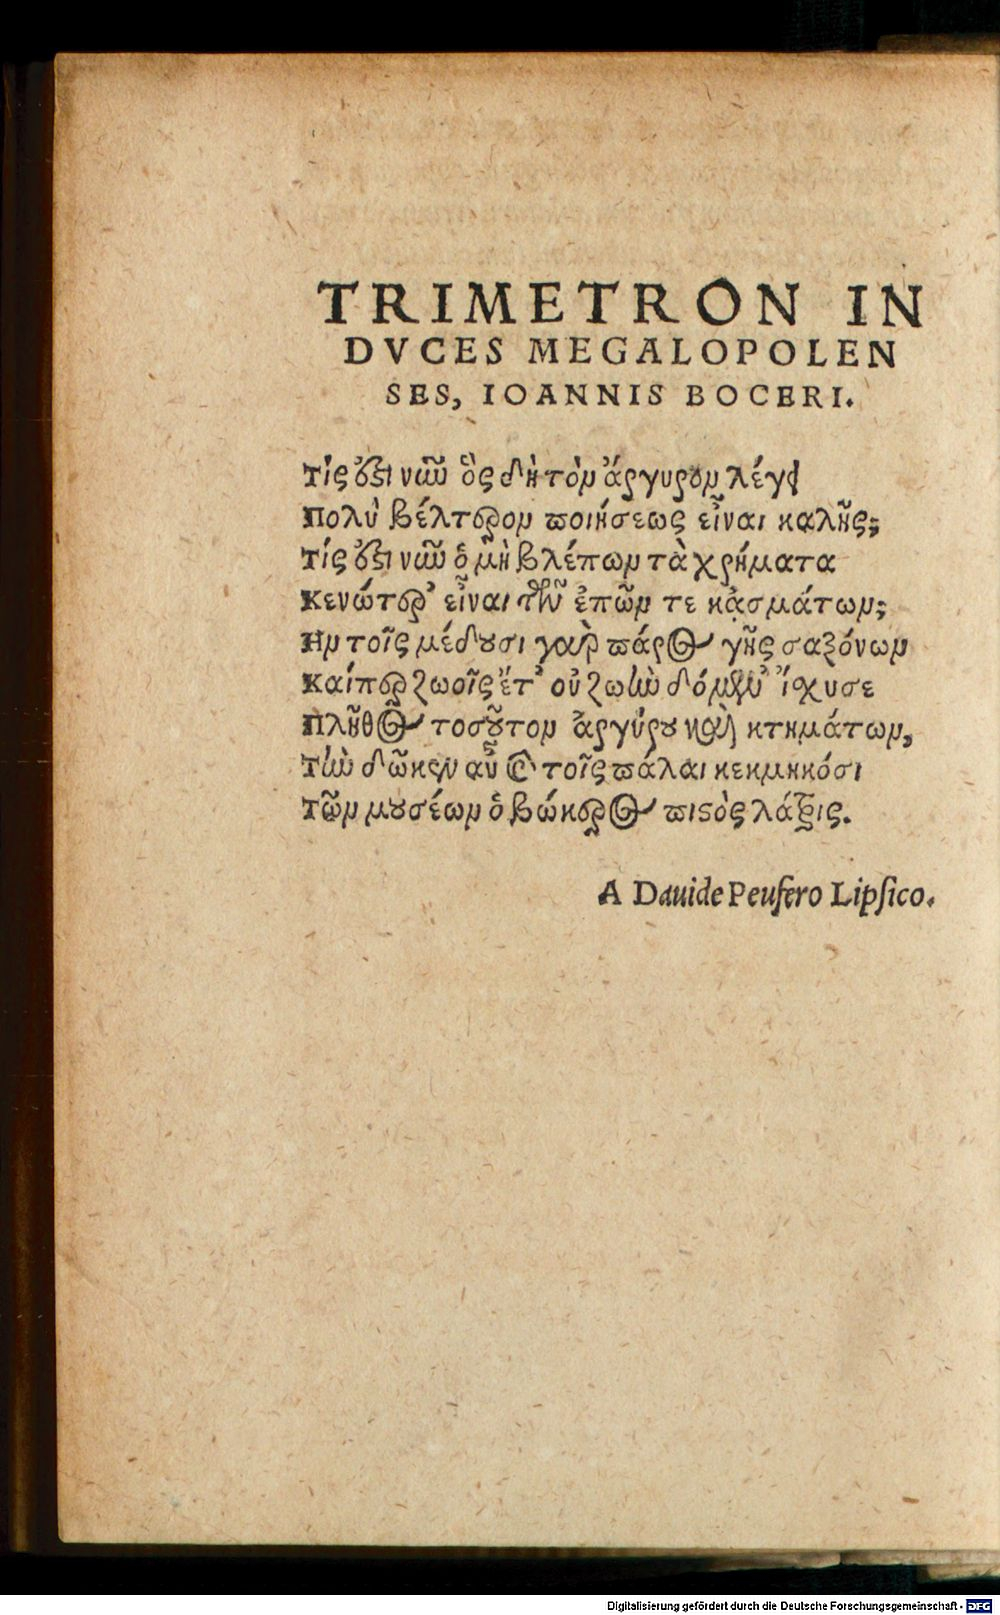 TRIMETRON IN
DVCES MEGALOPOLEN
SES, IOANNIS BOCERI.
Τίς ὅστι νῶϊ ὃς δὴ τὸν ἄργυρον λέγει
Πολὺ βέλτερον ποιήσεως εἶναι καλῆς;
Τίς ὅστι νῶϊ ὁ μὴ βλέπων τὰ χρήματα
Κενώτερ' εἶναι τῶν ἐπῶν τε κᾀσμάτων;
Ην τοῖς μέδουσι γὰρ πάρος γῆς σαξόνων
Καίπερ ζωοῖς ἔτ' οὐ ζωὴν δόμεν ἴσχυσε
Πλῆθος τοσοῦτον ἀργύρου καὶ κτημάτων,
Τὴν δῶκεν αὖ τοῖς πάλαι κεκμηκόσι
Τῶν μουσέων ὁ βώκερος πιστὸς λάτρις.
A Dauide Peufero Lipſico.
Digitalisierung gefördert durch die Deutsche Forschungsgemeinschaft - DFG